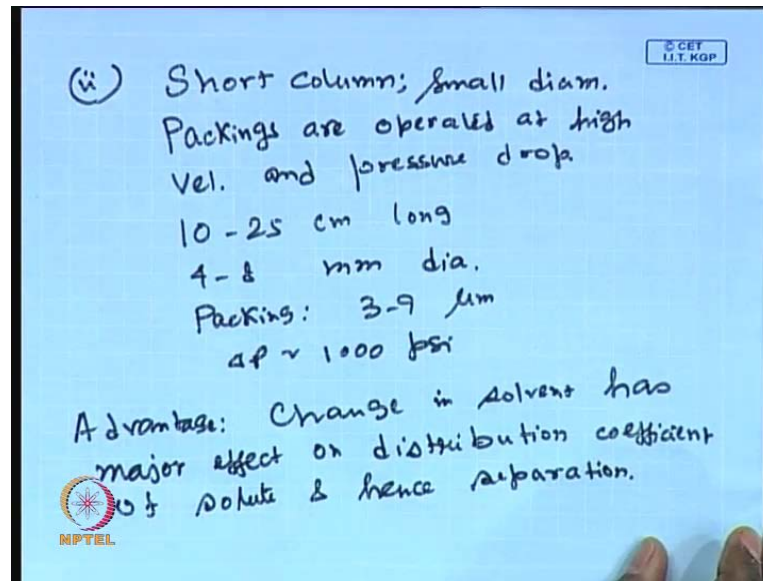 © CET
I.I.T. KGP
(ii) Short column; small diam.
Packings are operated at high
vel. and pressure drop.
10 - 25 cm long
4 - 8 mm dia.
Packing: 3-9 μm
ΔP ~ 1000 psi
Advantage: Change in solvent has
major effect on distribution coefficient
of solute & hence separation.
NPTEL